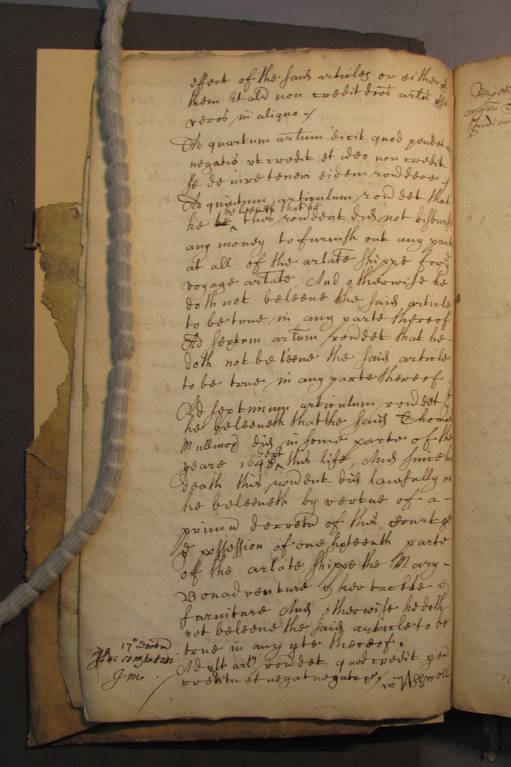 effect of the said articles or either of
them Et al'r non credit d'cos ar'los esse
veros in aliquo
Ad quartum ar'lum dicit quod pendet
negatio vt credit et ideo non credit
se de iure teneri eidem rendere
Ad quintum articulum rendet that
he beleeveth that he this rendent did not disburse
any money to furnish out any parte
at all of the arlate shippe for
voyage arlate, And otherwise he
doth not beleeve the said article
to be true in any parte thereof
Ad sextum ar'lum rendet that he
doth not beleeve the said article
to be true in any parte thereof.
Ad septimum articulum rendet
he beleeveth that the said Thomas
did in some parte of the
yeare 1648 this life, And since his
death this rendent did lawfully as
he beleeveth by vertue of a
primum decretum of this Court
possession of one sixteenth parte
of the arlate shippe the Mary
Bonadventure her tackle
furniture And otherwise he doth
not beleeve the said article to be
true in any p'te thereof.
Ad ult ar'l rendet quod credit
credita et negat negata